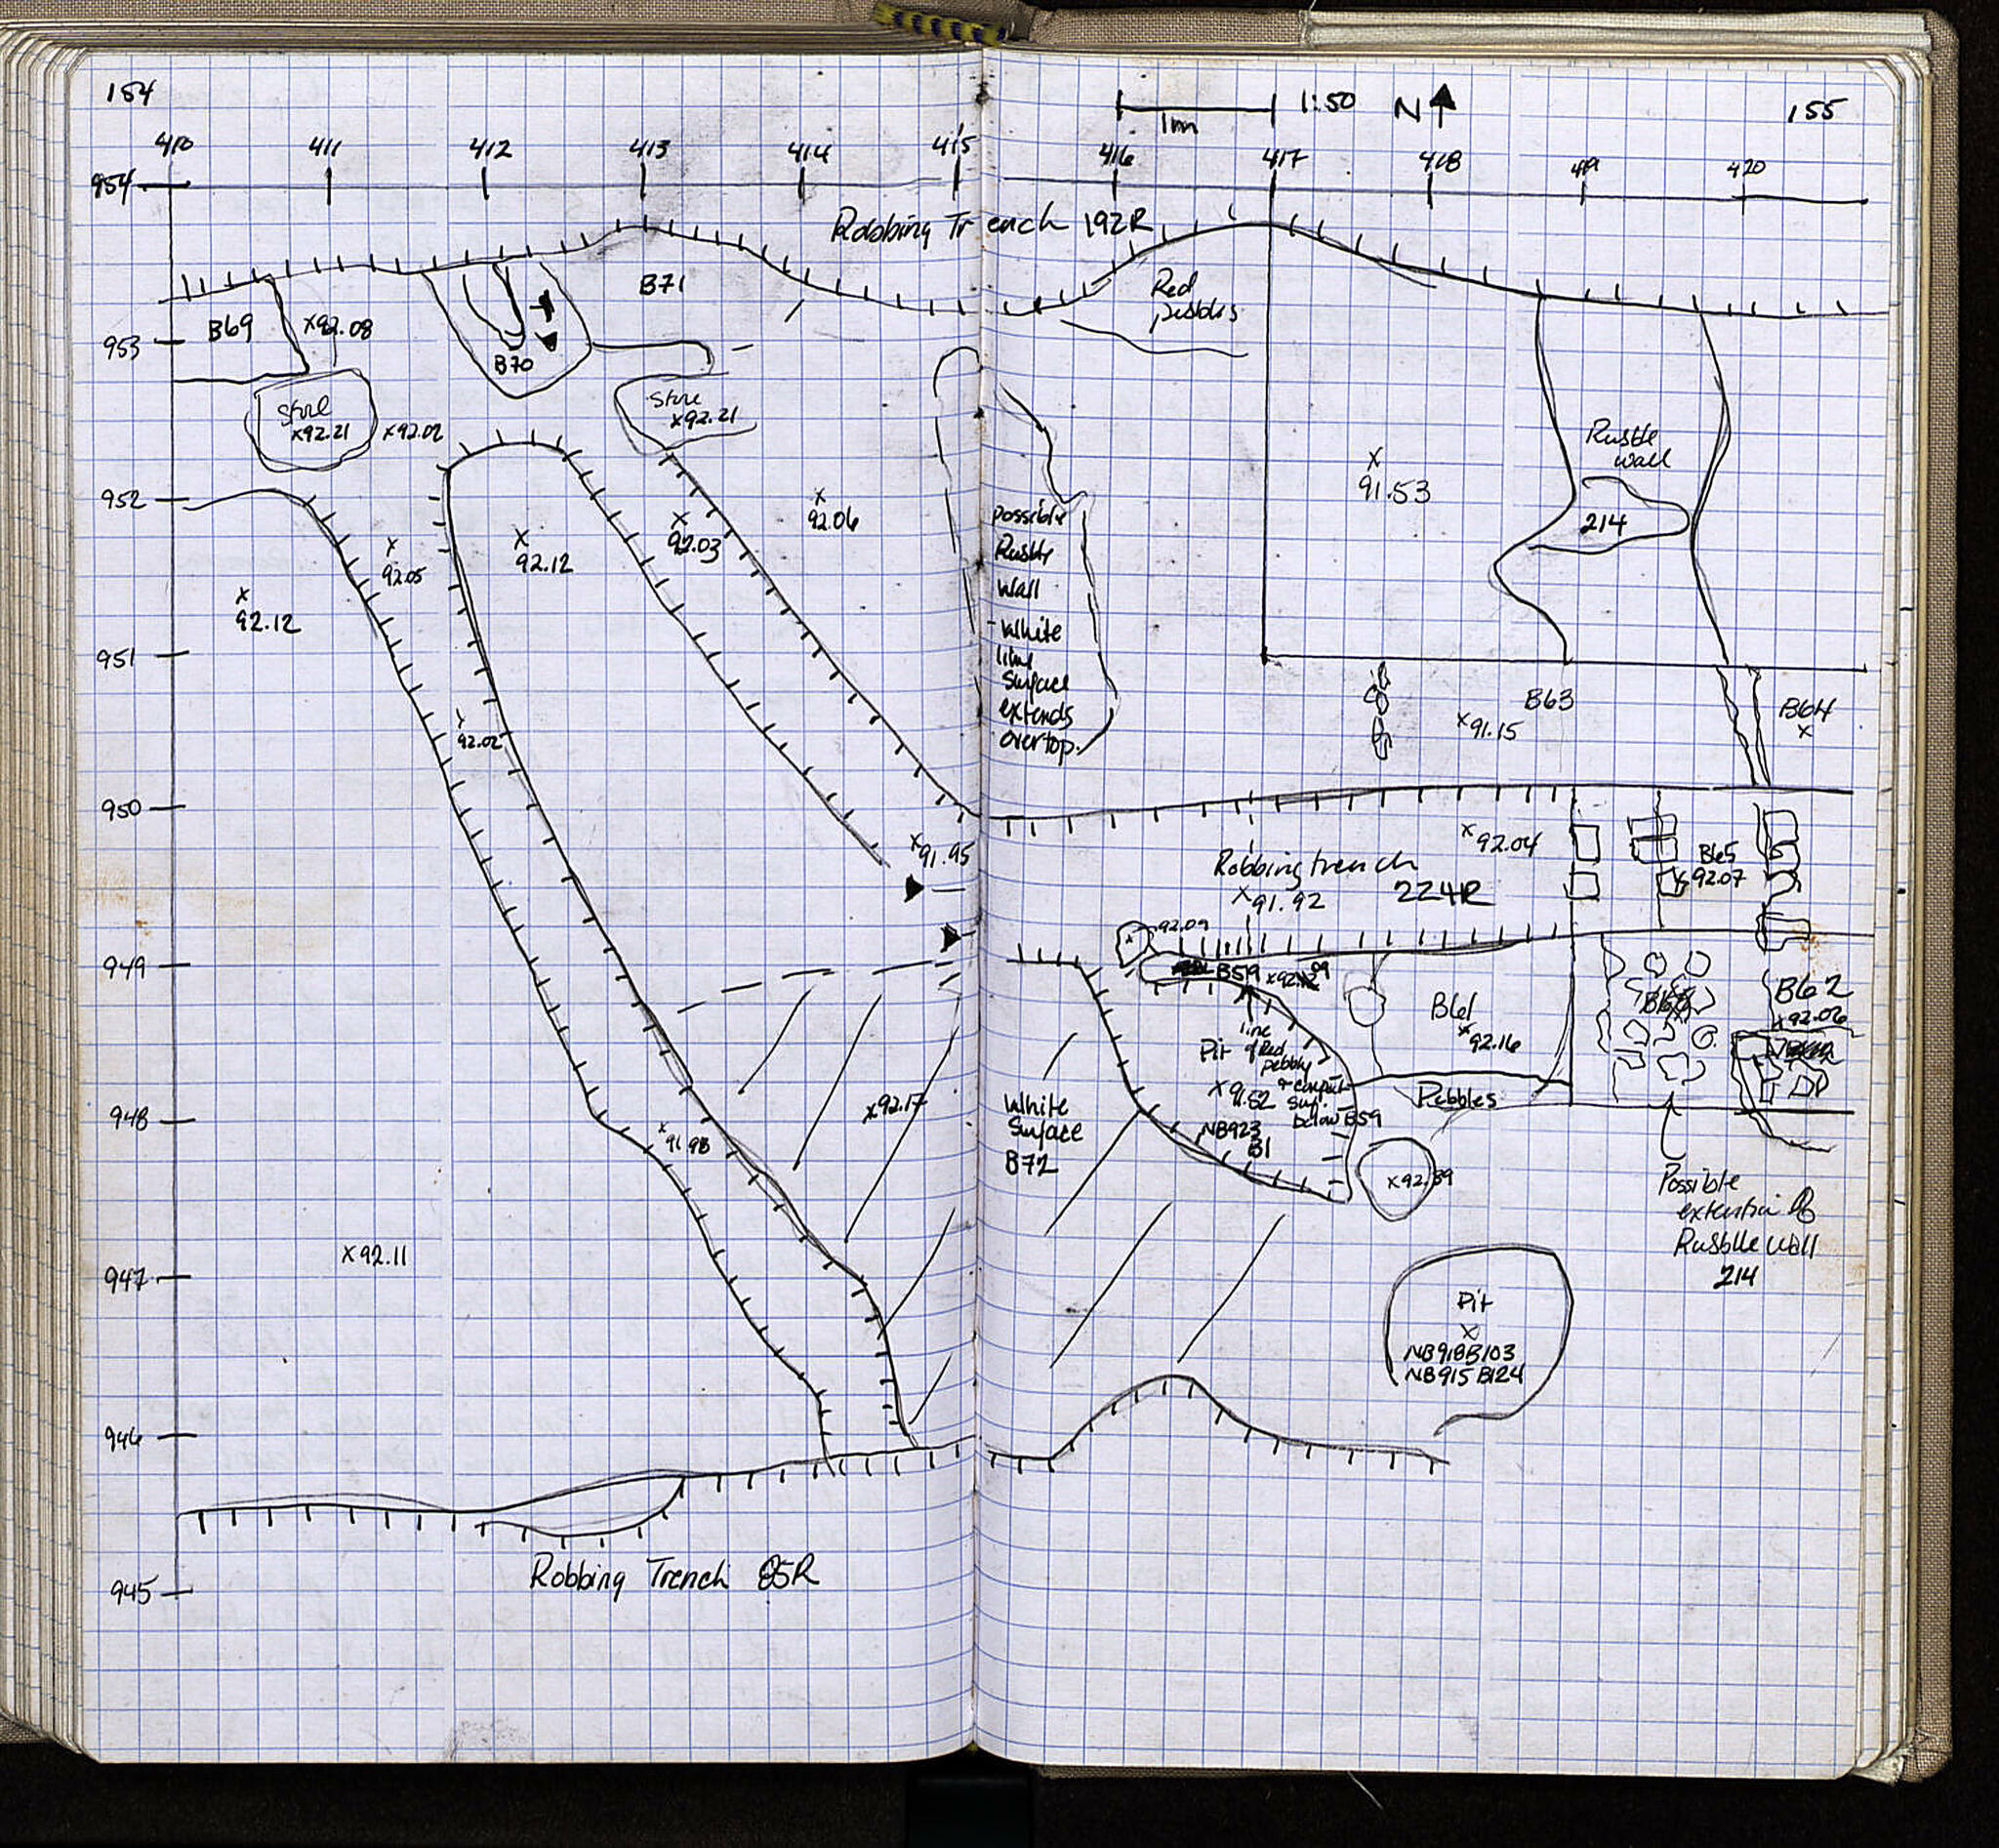 154
1:50 N
1m
155
410 411 412 413 414 415 416 417 418 419 420
954
Robbing Trench 192R
B71
Red
pebbles
B69
x92.08
953
B70
Stone
x92.21
x92.02
Stone
x92.21
Rubble
wall
x
91.53
952
x
92.06
214
x
92.03
x
92.12
x
92.05
x
92.12
possible
Rubble
wall
-white
lime
surface
extends
overtop.
951
B63
x91.15
B64
x
92.02
950
x91.95
x92.04
Robbing trench
224R
x91.92
B65
92.07
92.09
949
B59
B61
x92.16
B62
x92.06
line
of Red
pebbly
below B59
Pit
x91.52
NB923
B1
Pebbles
948
x92.17
White
Surface
B72
x
91.98
x92.39
Possible
extention of
Rubble wall
214
x92.11
947
Pit
x
NB918B103
NB915 B124
946
945
Robbing Trench 85R